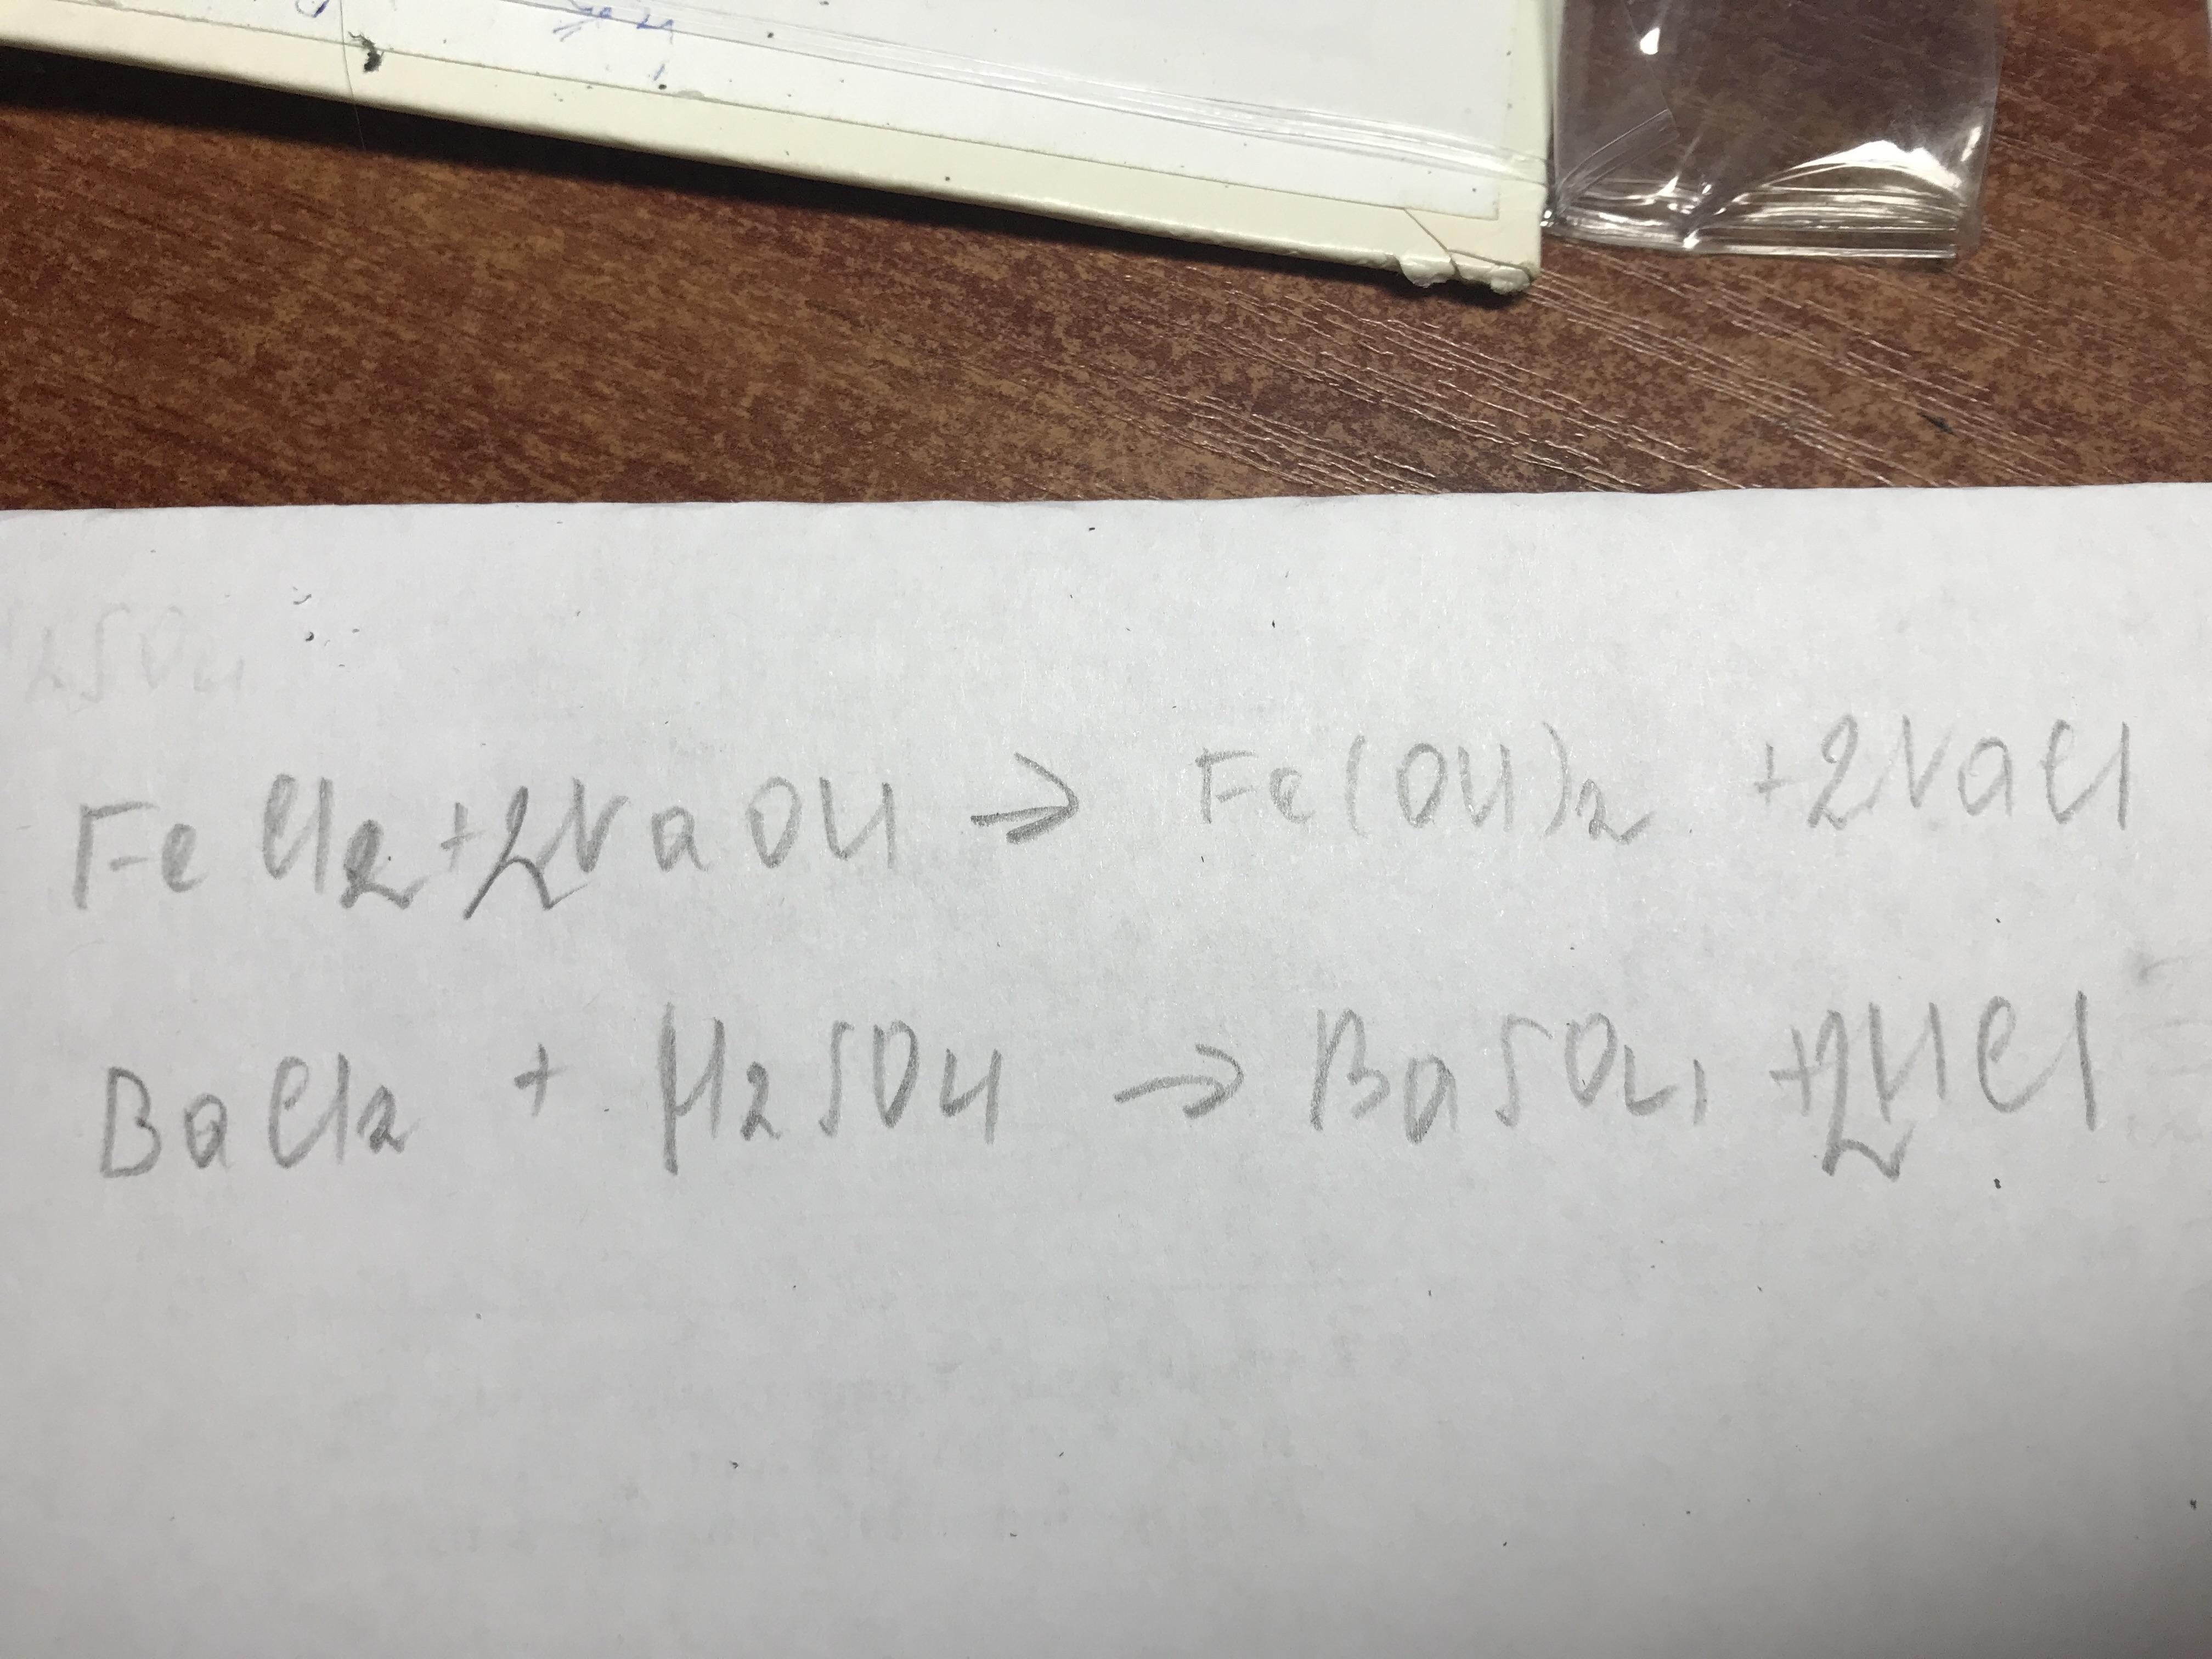 2SO4
FeCl2 +2NaOH → Fe(OH)2 +2NaCl
BaCl2 + H2SO4 → BaSO4 +2HCl